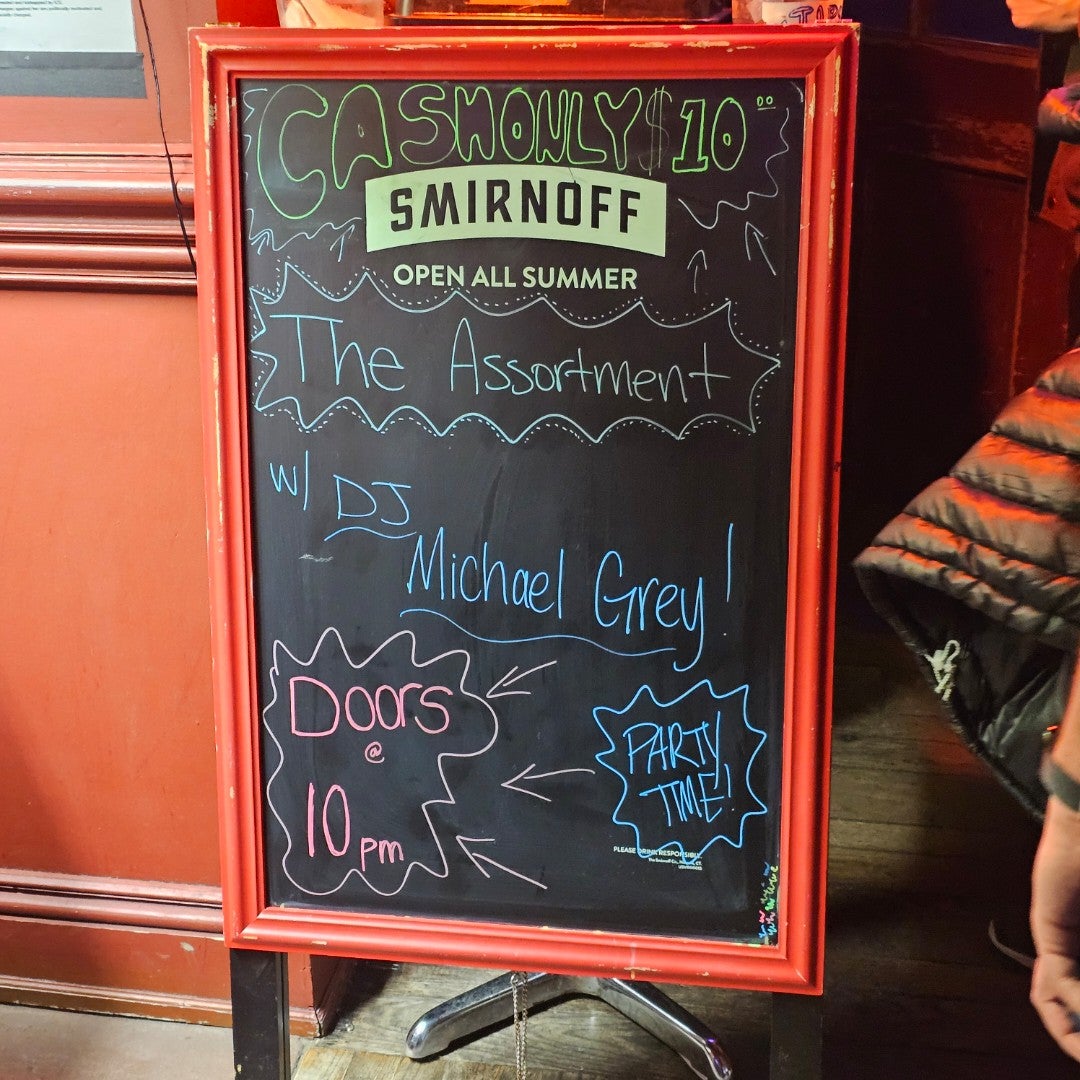 CASH ONLY $10.00
SMIRNOFF
OPEN ALL SUMMER
The Assortment
w/ DJ
Michael Grey!
Doors
@
10 pm
PARTY
TIME!
PLEASE DRINK RESPONSIBLY.